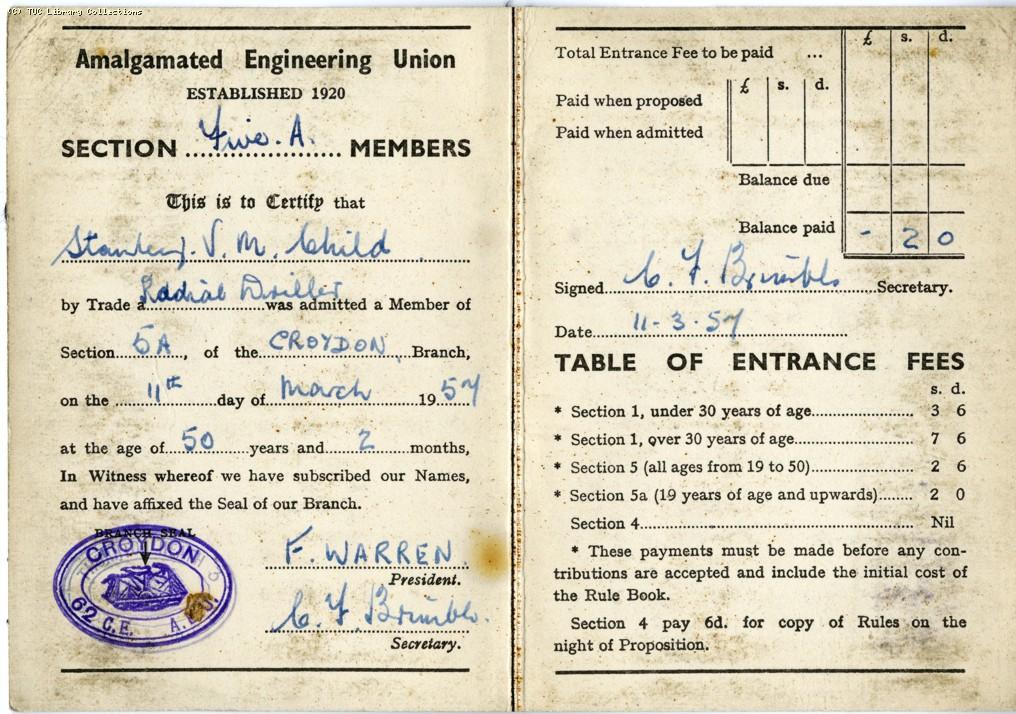 (C) TUC Library Collections
Amalgamated Engineering Union
ESTABLISHED 1920
SECTION Five. A. MEMBERS
This is to Certify that
Stanley. V. M. Child
by Trade a Radial Driller was admitted a Member of
Section 5A, of the CROYDON Branch,
on the 11th day of March 1957
at the age of 50 years and 2 months,
In Witness whereof we have subscribed our Names,
and have affixed the Seal of our Branch.
BRANCH SEAL
CROYDON 5
62 C.E. A.E.U.
F. WARREN.
President.
C. F. Brimble.
Secretary.
£ s. d.
Total Entrance Fee to be paid ...
£ s. d.
Paid when proposed
Paid when admitted
Balance due
Balance paid - 2 0
Signed C. F. Brimble Secretary.
Date 11-3-57
TABLE OF ENTRANCE FEES
s. d.
* Section 1, under 30 years of age 3 6
* Section 1, over 30 years of age 7 6
* Section 5 (all ages from 19 to 50) 2 6
* Section 5a (19 years of age and upwards) 2 0
Section 4 Nil
* These payments must be made before any con-
tributions are accepted and include the initial cost of
the Rule Book.
Section 4 pay 6d. for copy of Rules on the
night of Proposition.